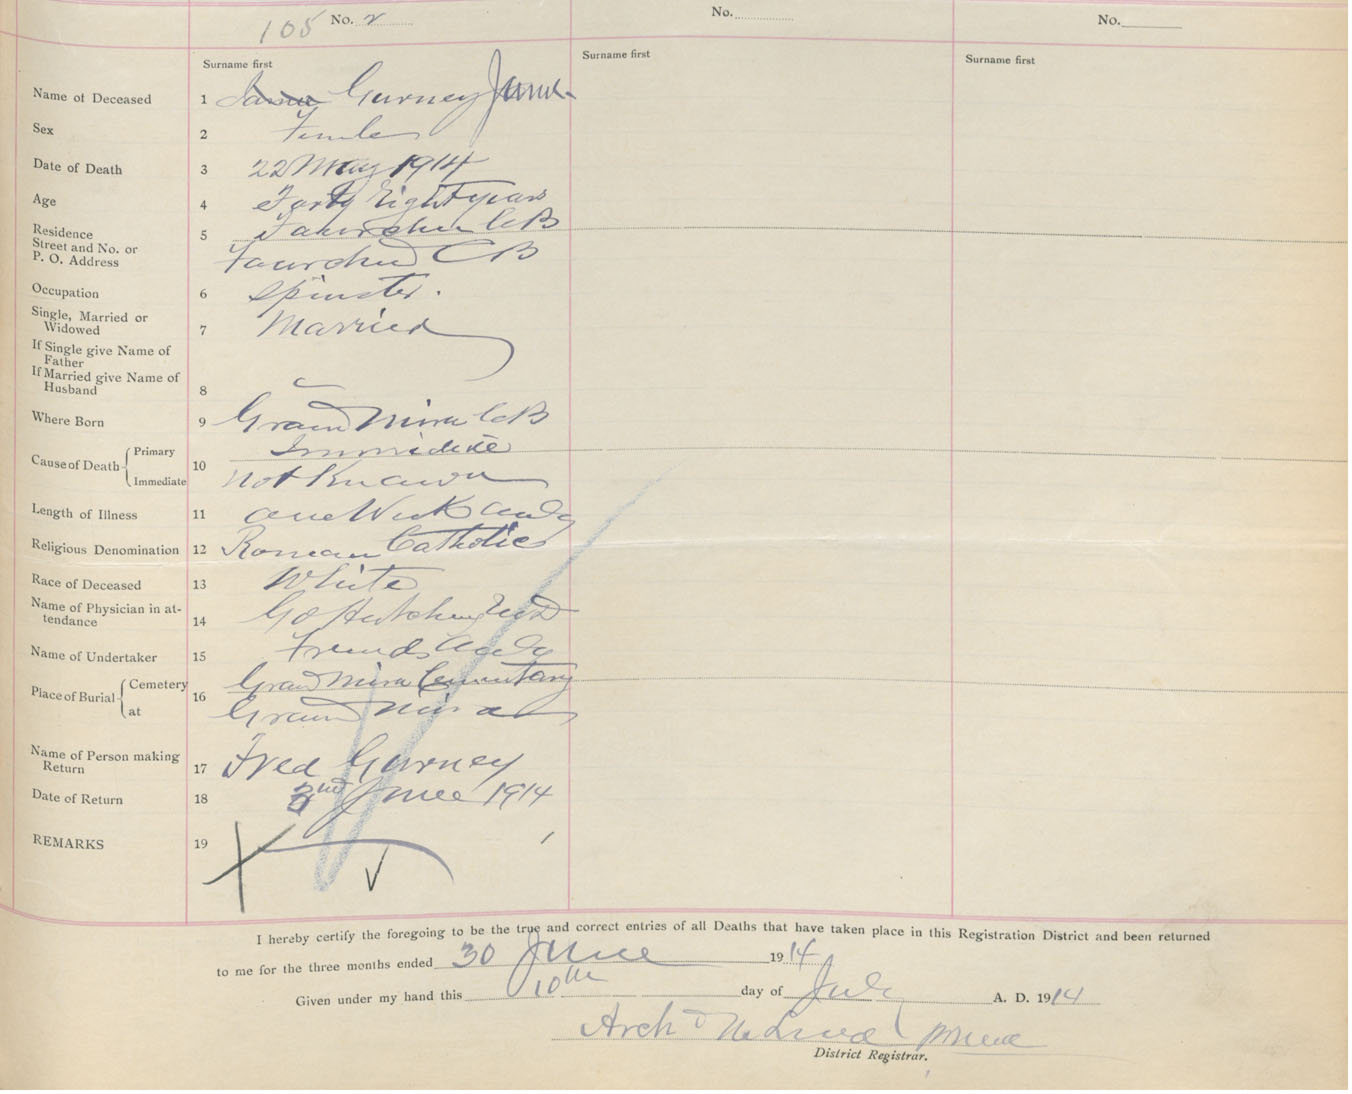 105 No. 2
No.
No.
Surname first
Surname first
Surname first
Name of Deceased 1 Gurney
Sex 2 Female
Date of Death 3 22 May 1914
Age 4 Forty Eight years
Residence
Street and No. or
P. O. Address
5 Fourchu CB
Fourchu CB
Occupation 6 Spinster.
Single, Married or
Widowed
7 Married
If Single give Name of
Father
If Married give Name of
Husband
8
Where Born 9 Grand Mira CB
Cause of Death Primary
Immediate
10
not Known
Length of Illness 11 one Week only
Religious Denomination 12 Roman Catholic
Race of Deceased 13 White
Name of Physician in at-
tendance
14 MD
Name of Undertaker 15 Friends only
Place of Burial Cemetery
at
16 Grand Mira Cementary
Grand Mira
Name of Person making
Return
17 Fred Gurney
Date of Return 18 2nd June 1914
REMARKS 19
I hereby certify the foregoing to be the true and correct entries of all Deaths that have taken place in this Registration District and been returned
to me for the three months ended 30 June 1914
Given under my hand this 10th day of July A. D. 1914
Arch
District Registrar.